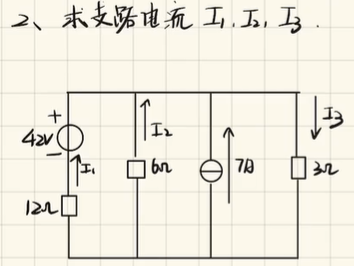 2、求支路电流 I₁, I₂, I₃.
+
42V
−
I₁
12Ω
I₂
6Ω
7A
I₃
3Ω